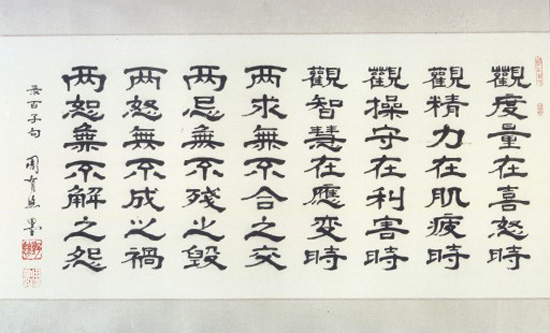 觀度量在喜怒時
觀精力在肌疲時
觀操守在利害時
觀智慧在應变時
两求無不合之交
两忌無不殘之毀
两怒無不成之禍
两恕無不解之怨
录百子句
周 墨